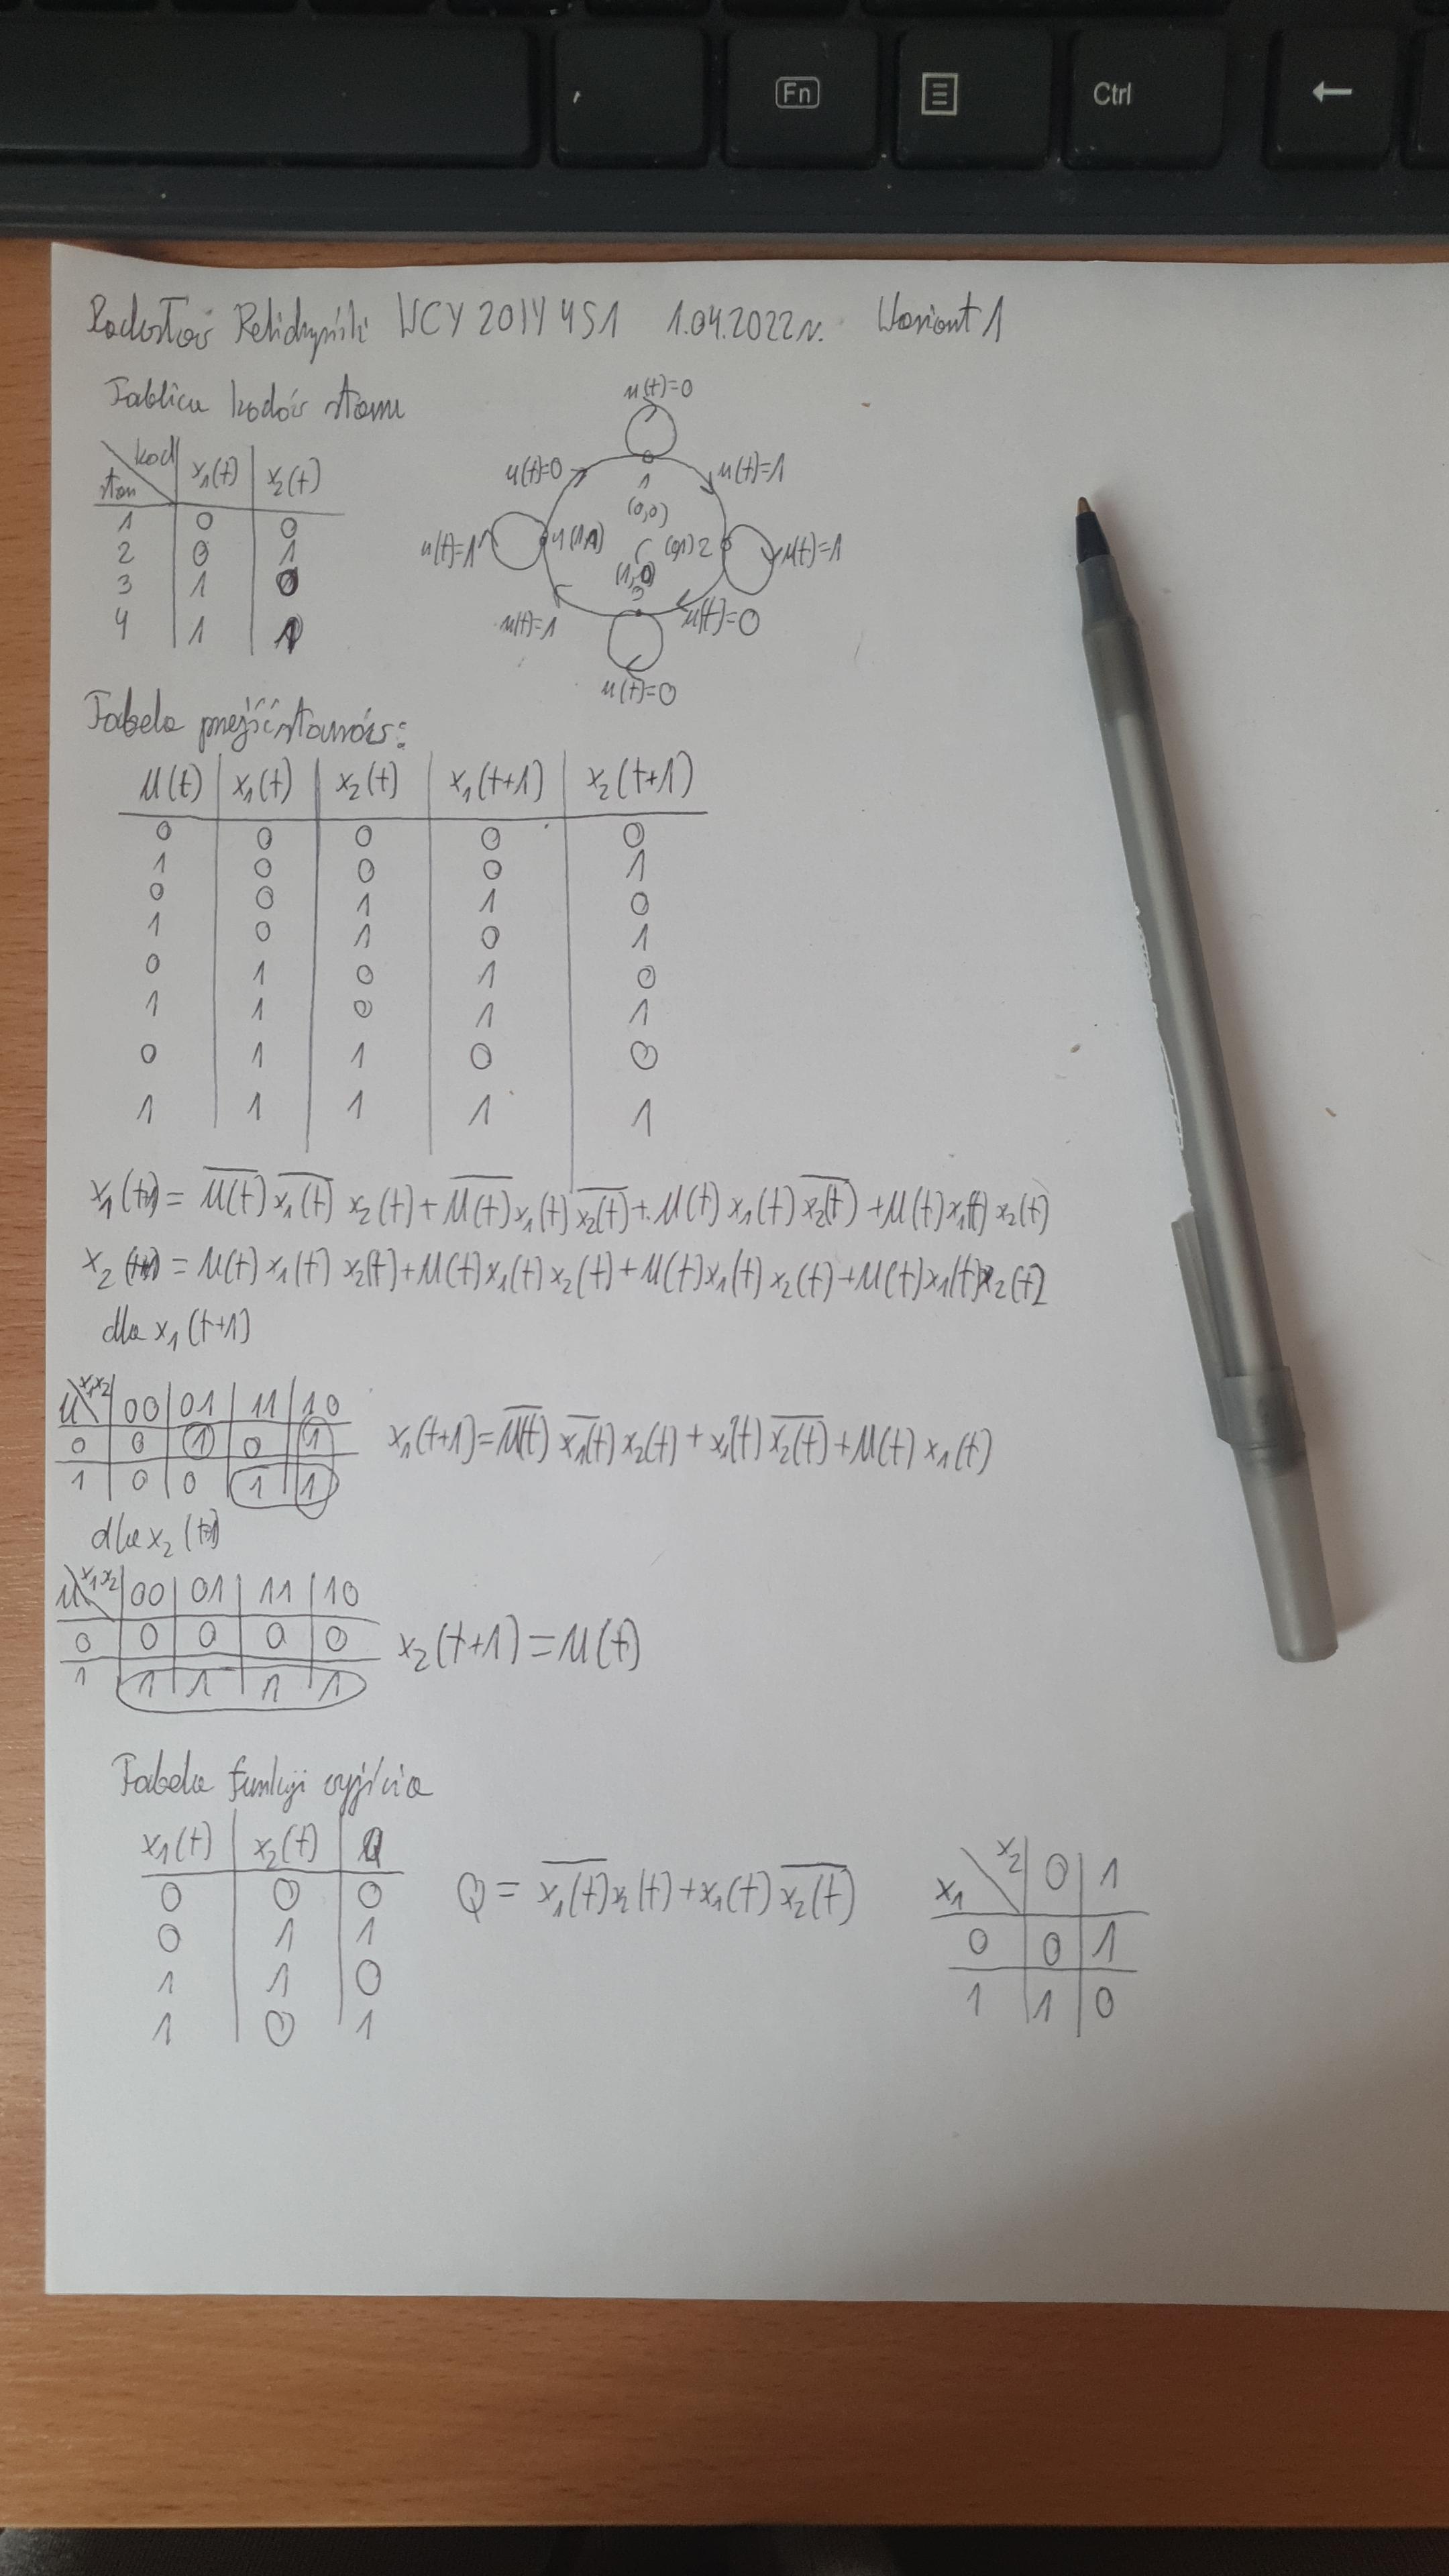 Fn Ctrl ←
Radosław Relidzyński WCY20IY4S1 1.04.2022r. Wariant 1
Tablica kodów stanu
stan \ kod | x₁(t) | x₂(t)
1 | 0 | 0
2 | 0 | 1
3 | 1 | 0
4 | 1 | 1
u(t)=0
u(t)=0 u(t)=1
1
(0,0)
u(t)=1 4 (1,1) (0,1) 2 u(t)=1
(1,0)
3
u(t)=1 u(t)=0
u(t)=0
Tabela przejść stanów:
u(t) | x₁(t) | x₂(t) | x₁(t+1) | x₂(t+1)
0 | 0 | 0 | 0 | 0
1 | 0 | 0 | 0 | 1
0 | 0 | 1 | 1 | 0
1 | 0 | 1 | 0 | 1
0 | 1 | 0 | 1 | 0
1 | 1 | 0 | 1 | 1
0 | 1 | 1 | 0 | 0
1 | 1 | 1 | 1 | 1
x₁(t+1) = u̅(̅t̅)̅ x̅₁̅(̅t̅)̅ x₂(t) + u̅(̅t̅)̅ x₁(t) x̅₂̅(̅t̅)̅ + u(t) x₁(t) x̅₂̅(̅t̅)̅ + u(t) x₁(t) x₂(t)
x₂(t+1) = u(t) x₁(t) x₂(t) + u(t) x₁(t) x₂(t) + u(t) x₁(t) x₂(t) + u(t) x₁(t) x₂(t)
dla x₁(t+1)
u \ x₁x₂ | 00 | 01 | 11 | 10
0 | 0 | 1 | 0 | 1
1 | 0 | 0 | 1 | 1
x₁(t+1) = u̅(̅t̅)̅ x̅₁̅(̅t̅)̅ x₂(t) + x₁(t) x̅₂̅(̅t̅)̅ + u(t) x₁(t)
dla x₂(t+1)
u \ x₁x₂ | 00 | 01 | 11 | 10
0 | 0 | 0 | 0 | 0
1 | 1 | 1 | 1 | 1
x₂(t+1) = u(t)
Tabela funkcji wyjścia
x₁(t) | x₂(t) | Q
0 | 0 | 0
0 | 1 | 1
1 | 1 | 0
1 | 0 | 1
Q = x̅₁̅(̅t̅)̅ x₂(t) + x₁(t) x̅₂̅(̅t̅)̅
x₁ \ x₂ | 0 | 1
0 | 0 | 1
1 | 1 | 0